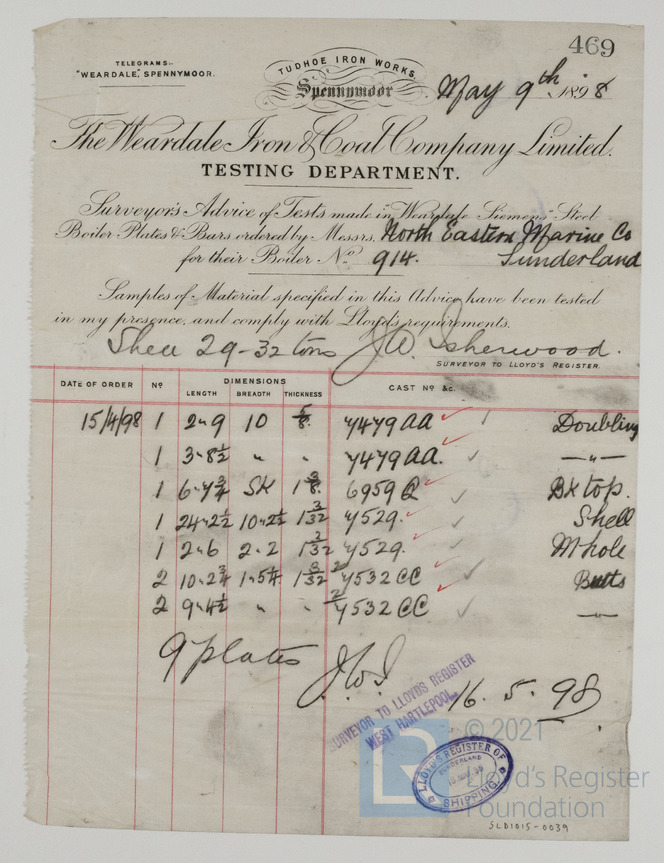 469
TELEGRAMS:-
"WEARDALE," SPENNYMOOR.
TUDHOE IRON WORKS,
Spennymoor
May 9th 1898
The Weardale Iron & Coal Company Limited.
TESTING DEPARTMENT.
Surveyor's Advice of Tests made in "Weardale Siemens" Steel
Boiler Plates & Bars ordered by Messrs. North Eastern Marine Co
for their Boiler No. 914. Sunderland
Samples of Material specified in this Advice have been tested
in my presence, and comply with Lloyd's requirements.
Shell 29-32 tons J.W. Isherwood.
SURVEYOR TO LLOYD'S REGISTER.
DATE OF ORDER No DIMENSIONS CAST No &c.
LENGTH BREADTH THICKNESS
15/4/98 1 2"9 10 5/8 7479 AA Doubling
1 3"8½ " " 7479 AA. —"—
1 6"7¾ SK 1 3/8 6959 Q Bk top.
1 24"2½ 10"2½ 1 3/32 7529. Shell
1 2"6 2"2 1 3/32 7529. Mhole
2 10"2¾ 1"5¼ 1 3/32 2/7532 CC Butts
2 9"4½ " " 2/7532 CC —"—
9 plates J.W.I.
SURVEYOR TO LLOYD'S REGISTER
WEST HARTLEPOOL
16. 5. 98
LLOYD'S REGISTER OF
SUNDERLAND
SHIPPING.
© 2021
Lloyd's Register
Foundation
SLD1015-0039